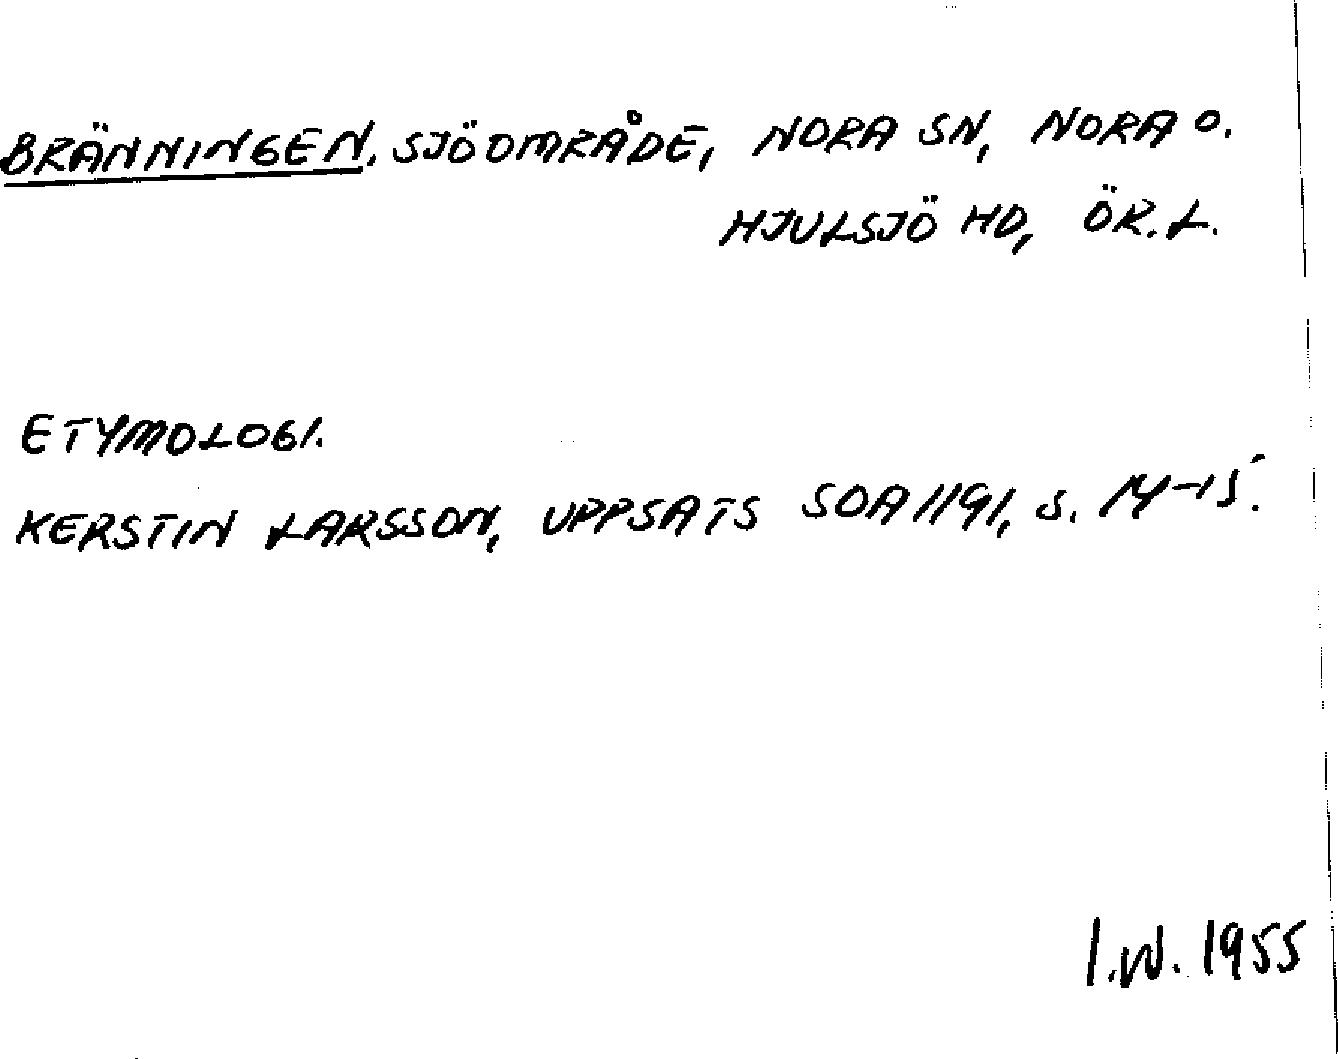 BRÄNNINGEN, SJÖOMRÅDE, NORA SN, NORA O.
HJULSJÖ HD, ÖR.L.
ETYMOLOGI.
KERSTIN LARSSON, UPPSATS SOA 1191, S. 14-15.
I.W. 1955